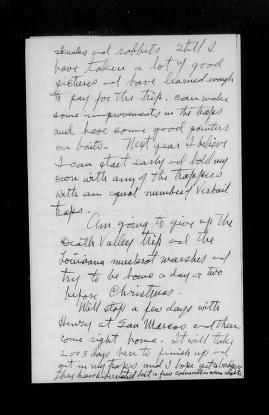 skunks and rabbits. Still I
have taken a lot of good
pictures and have learned enough
to pay for the trip. Can make
some improvements in the traps
and have some good pointers
on baits. Next year I believe
I can start early and hold my
own with any of the trappers
with an equal number of Verbail
traps.
Am going to give up the
Death Valley trip and the
Louisiana muskrat marshes and
try to be home a day or two
before Christmas.
Will stop a few days with
Henry at San Marcos and then
come right home. It will take
2 or 3 days here to finish up and
get in my traps and I hope get a badger.
They have but a few